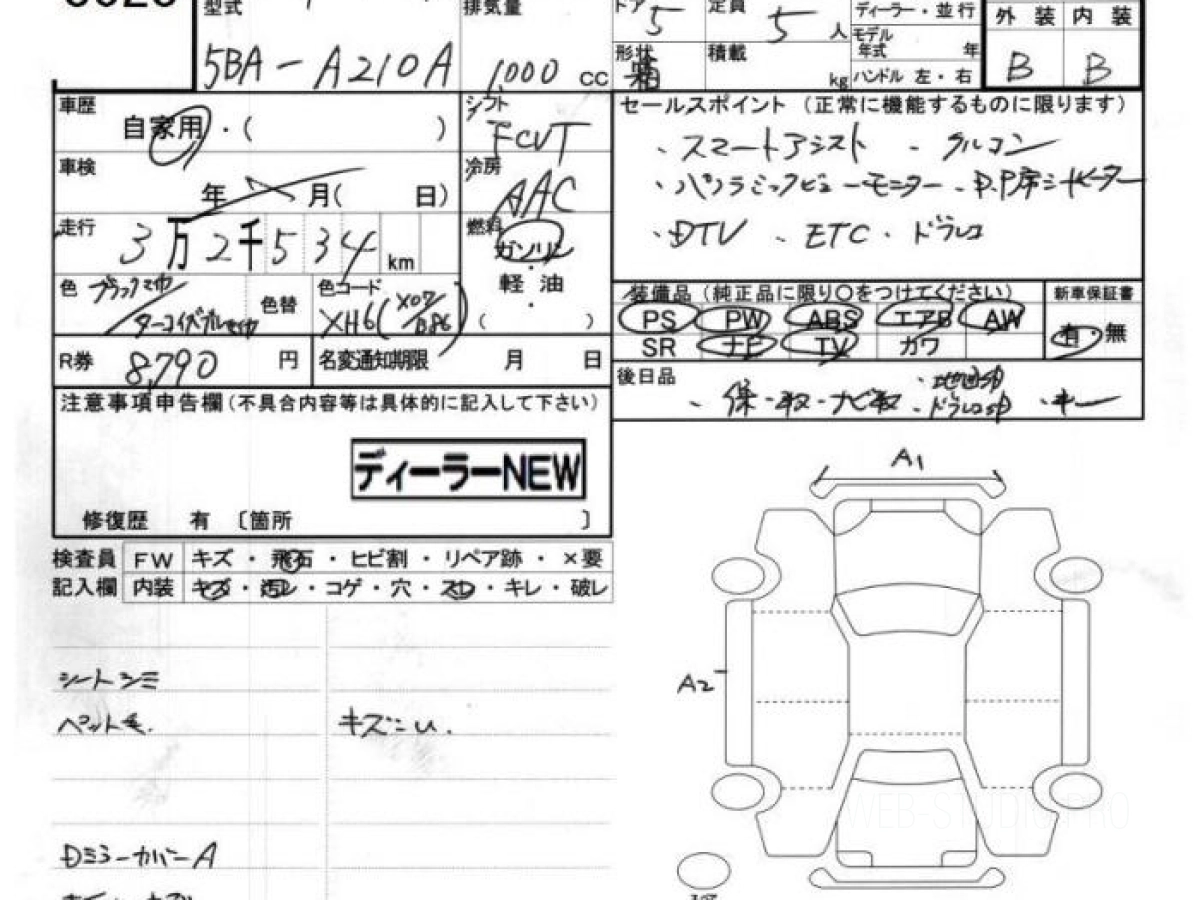 型式 排気量 ドア 5 定員 5 人 ディーラー・並行 外装 内装
モデル年式 年
5BA-A210A 1,000 cc 形状 箱 積載 kg ハンドル 左・右 B B
車歴 自家用・( ) シフト FCVT セールスポイント (正常に機能するものに限ります)
・スマートアシスト ・クルコン
車検 年 月( 日) 冷房 AAC
・パノラミックビューモニター ・D.P席シートヒーター
走行 3万2千534 km 燃料 ガソリン
・DTV ・ETC ・ドラレコ
軽油
・
( )
色 ブラックマイカ/ターコイズブルーマイカ 色替 色コード XH6(X07/B86)
装備品 (純正品に限り○をつけてください) 新車保証書
PS PW ABS エアB AW 有・無
SR ナビ TV カワ
R券 8,790 円 名変通知期限 月 日
後日品
・保・取・ナビ取 ・地図SD ・ドラレコSD ・キー
注意事項申告欄(不具合内容等は具体的に記入して下さい)
ディーラーNEW
修復歴 有 〔箇所 〕
A1
検査員 FW キズ・飛石・ヒビ割・リペア跡・×要
記入欄 内装 キズ・汚レ・コゲ・穴・スレ・キレ・破レ
シートシミ
A2
ペット毛.
キズこい.
WEB-STUDIO.PRO
Dミラーカバー A